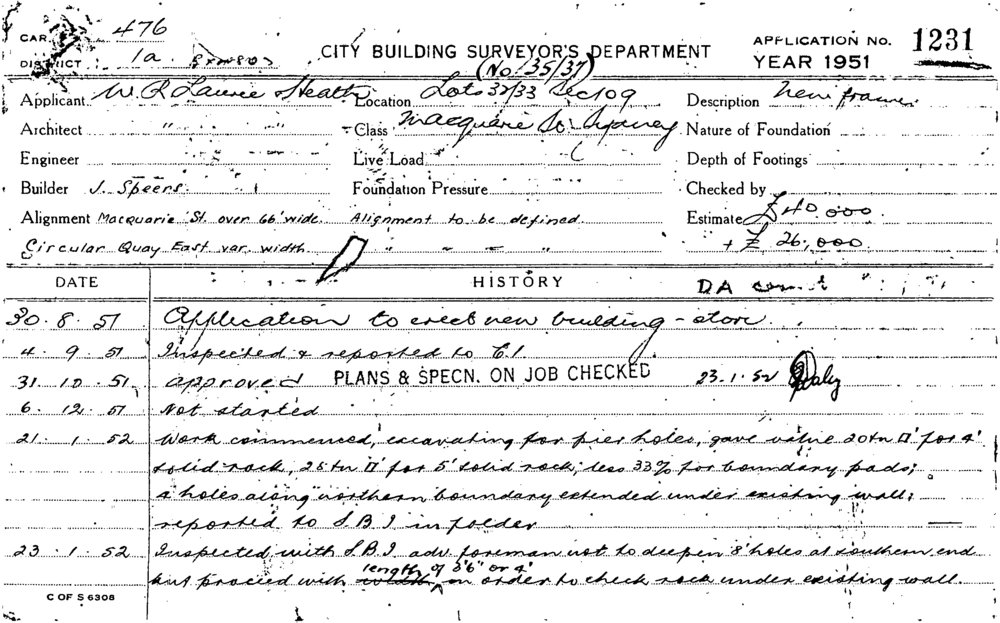 CARD 476
DISTRICT 1a
CITY BUILDING SURVEYOR'S DEPARTMENT
(No 135/37)
APPLICATION No. 1231
YEAR 1951
Applicant W. R. Laurie Heath
Location Lots 32/33 Sec 109
Description New frame
Architect " "
Class Macquarie St Sydney
Nature of Foundation
Engineer
Live Load
Depth of Footings
Builder J. Speers
Foundation Pressure
Checked by
Alignment Macquarie St. over 66' wide. Alignment to be defined
Estimate £40.000
Circular Quay East var. width " " " "
+ £ 26,000
DATE HISTORY DA
30.8.51 Application to erect new building - store
4.9.51 Inspected & reported to C.I.
31.10.51 approved PLANS & SPECN. ON JOB CHECKED 23.1.52 Daly
6.12.51 Not started
21.1.52 Work commenced, excavating for pier holes, gave value 20 tn □' for 4'
solid rock, 25 tn □' for 5' solid rock, less 33% for boundary pads;
4 holes along northern boundary extended under existing wall;
reported to S.B.I in folder
23.1.52 Inspected with S.B.I adv. foreman not to deepen 8' holes at southern end
but proceed with length of 3'6" or 4' in order to check rock under existing wall.
C OF S 6308